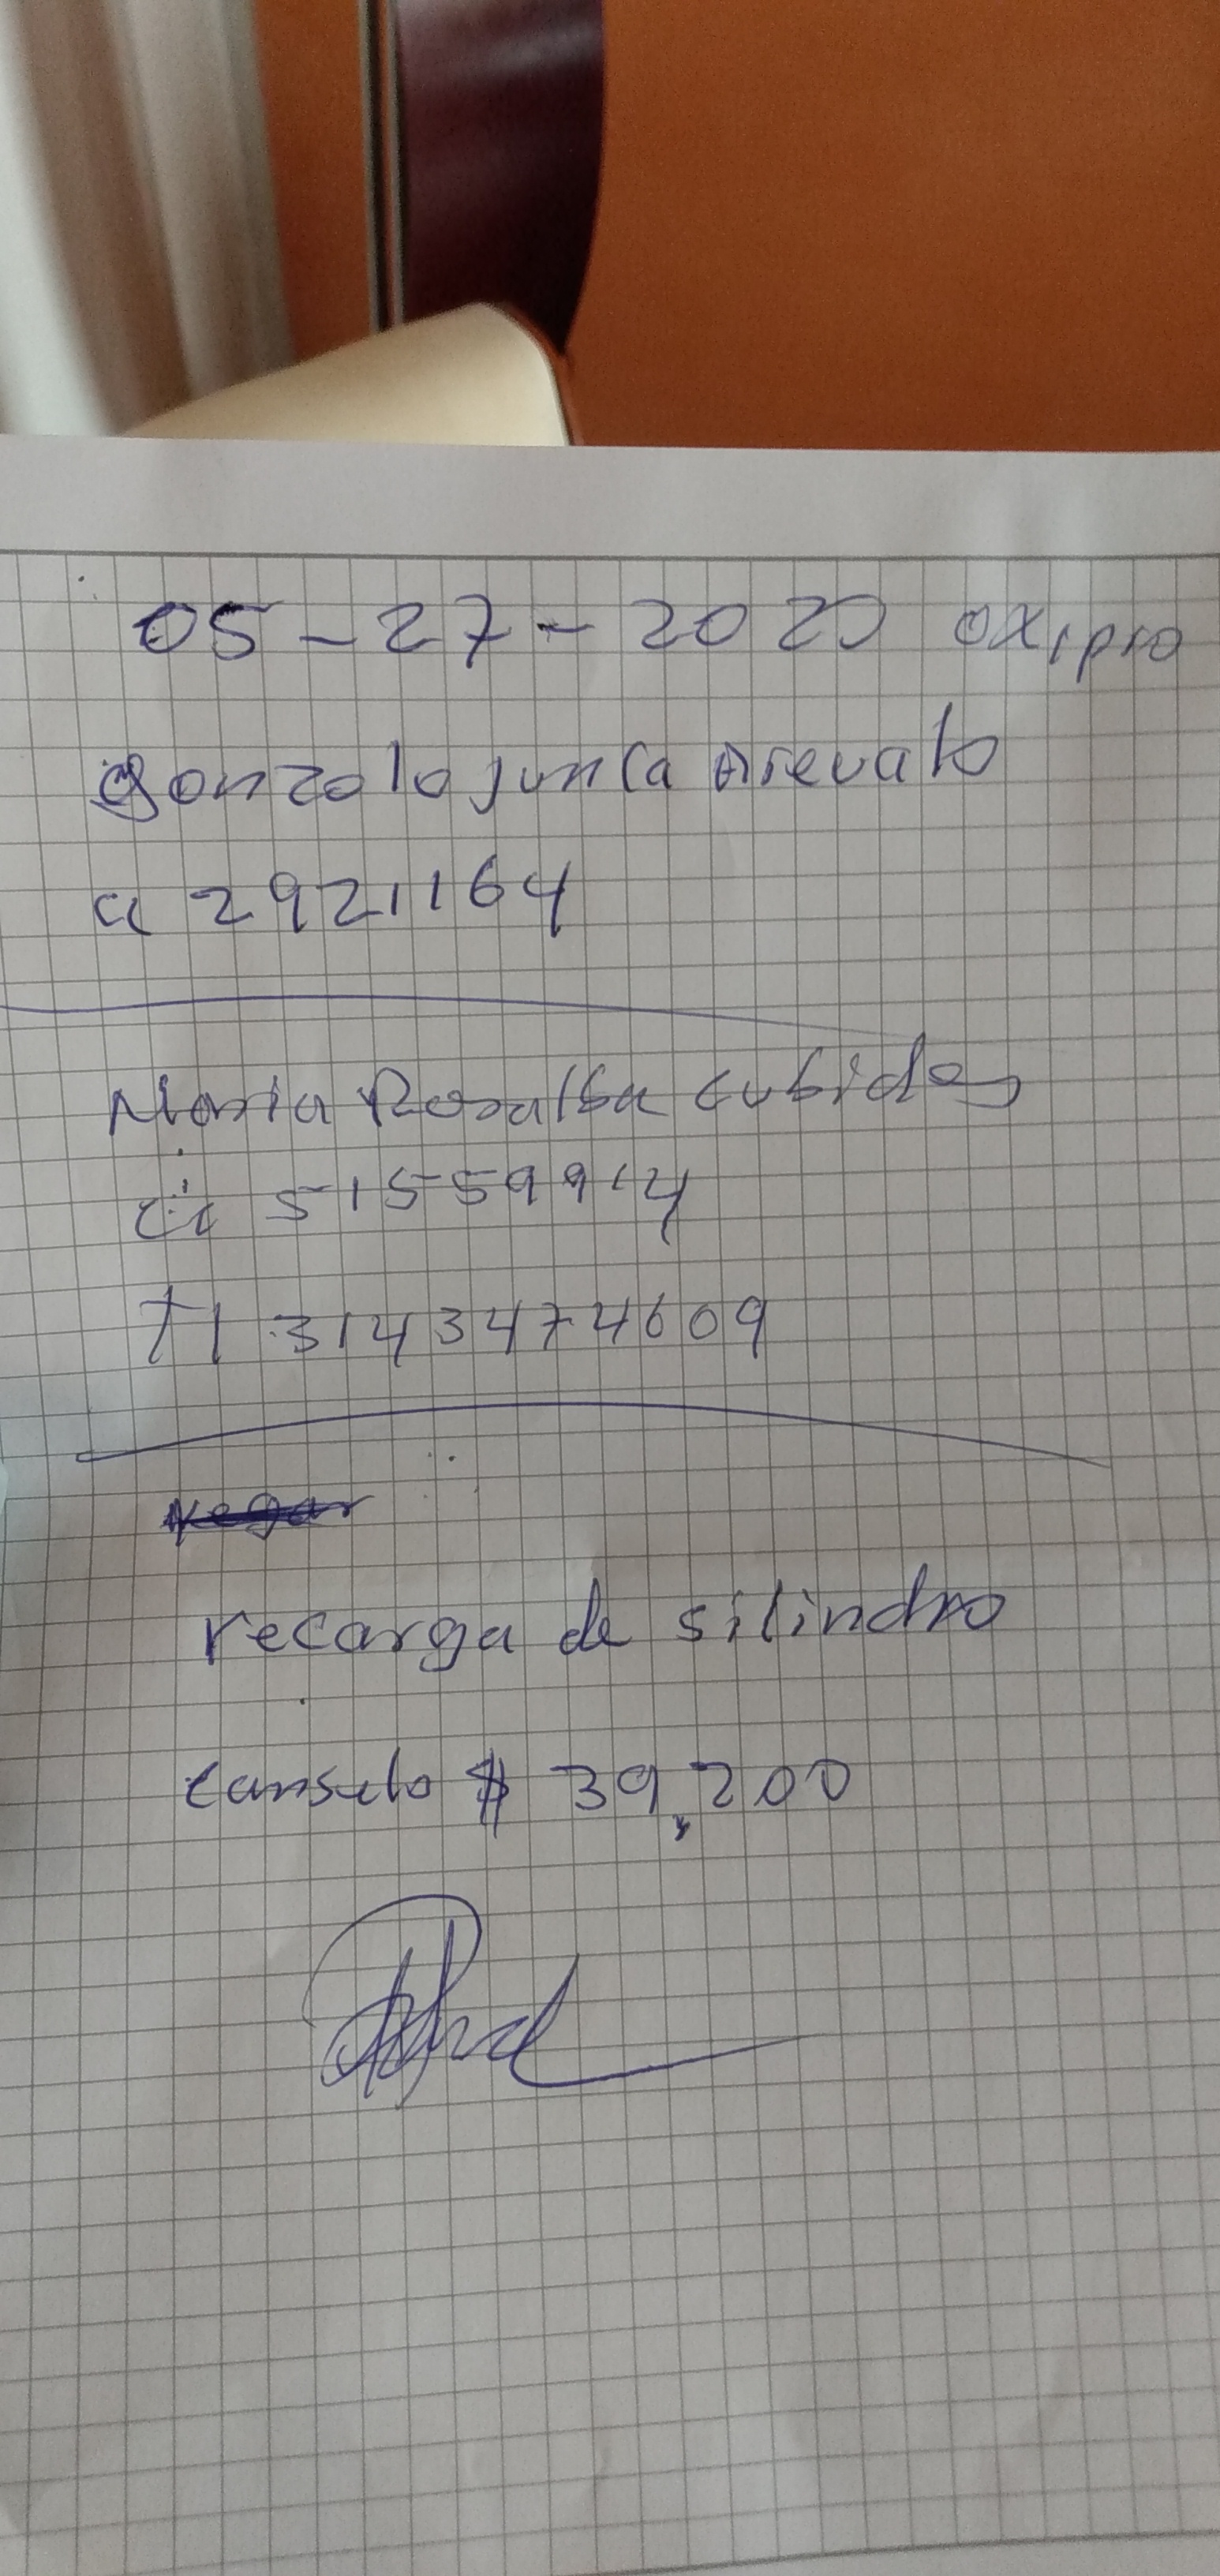 05-27-2020 oxipro
Gonzalo junca Arevalo
cc 2921164
Maria Rosalba cubides
cc 51559914
Tl 3143474609
recarga de silindro
canselo $ 39,200